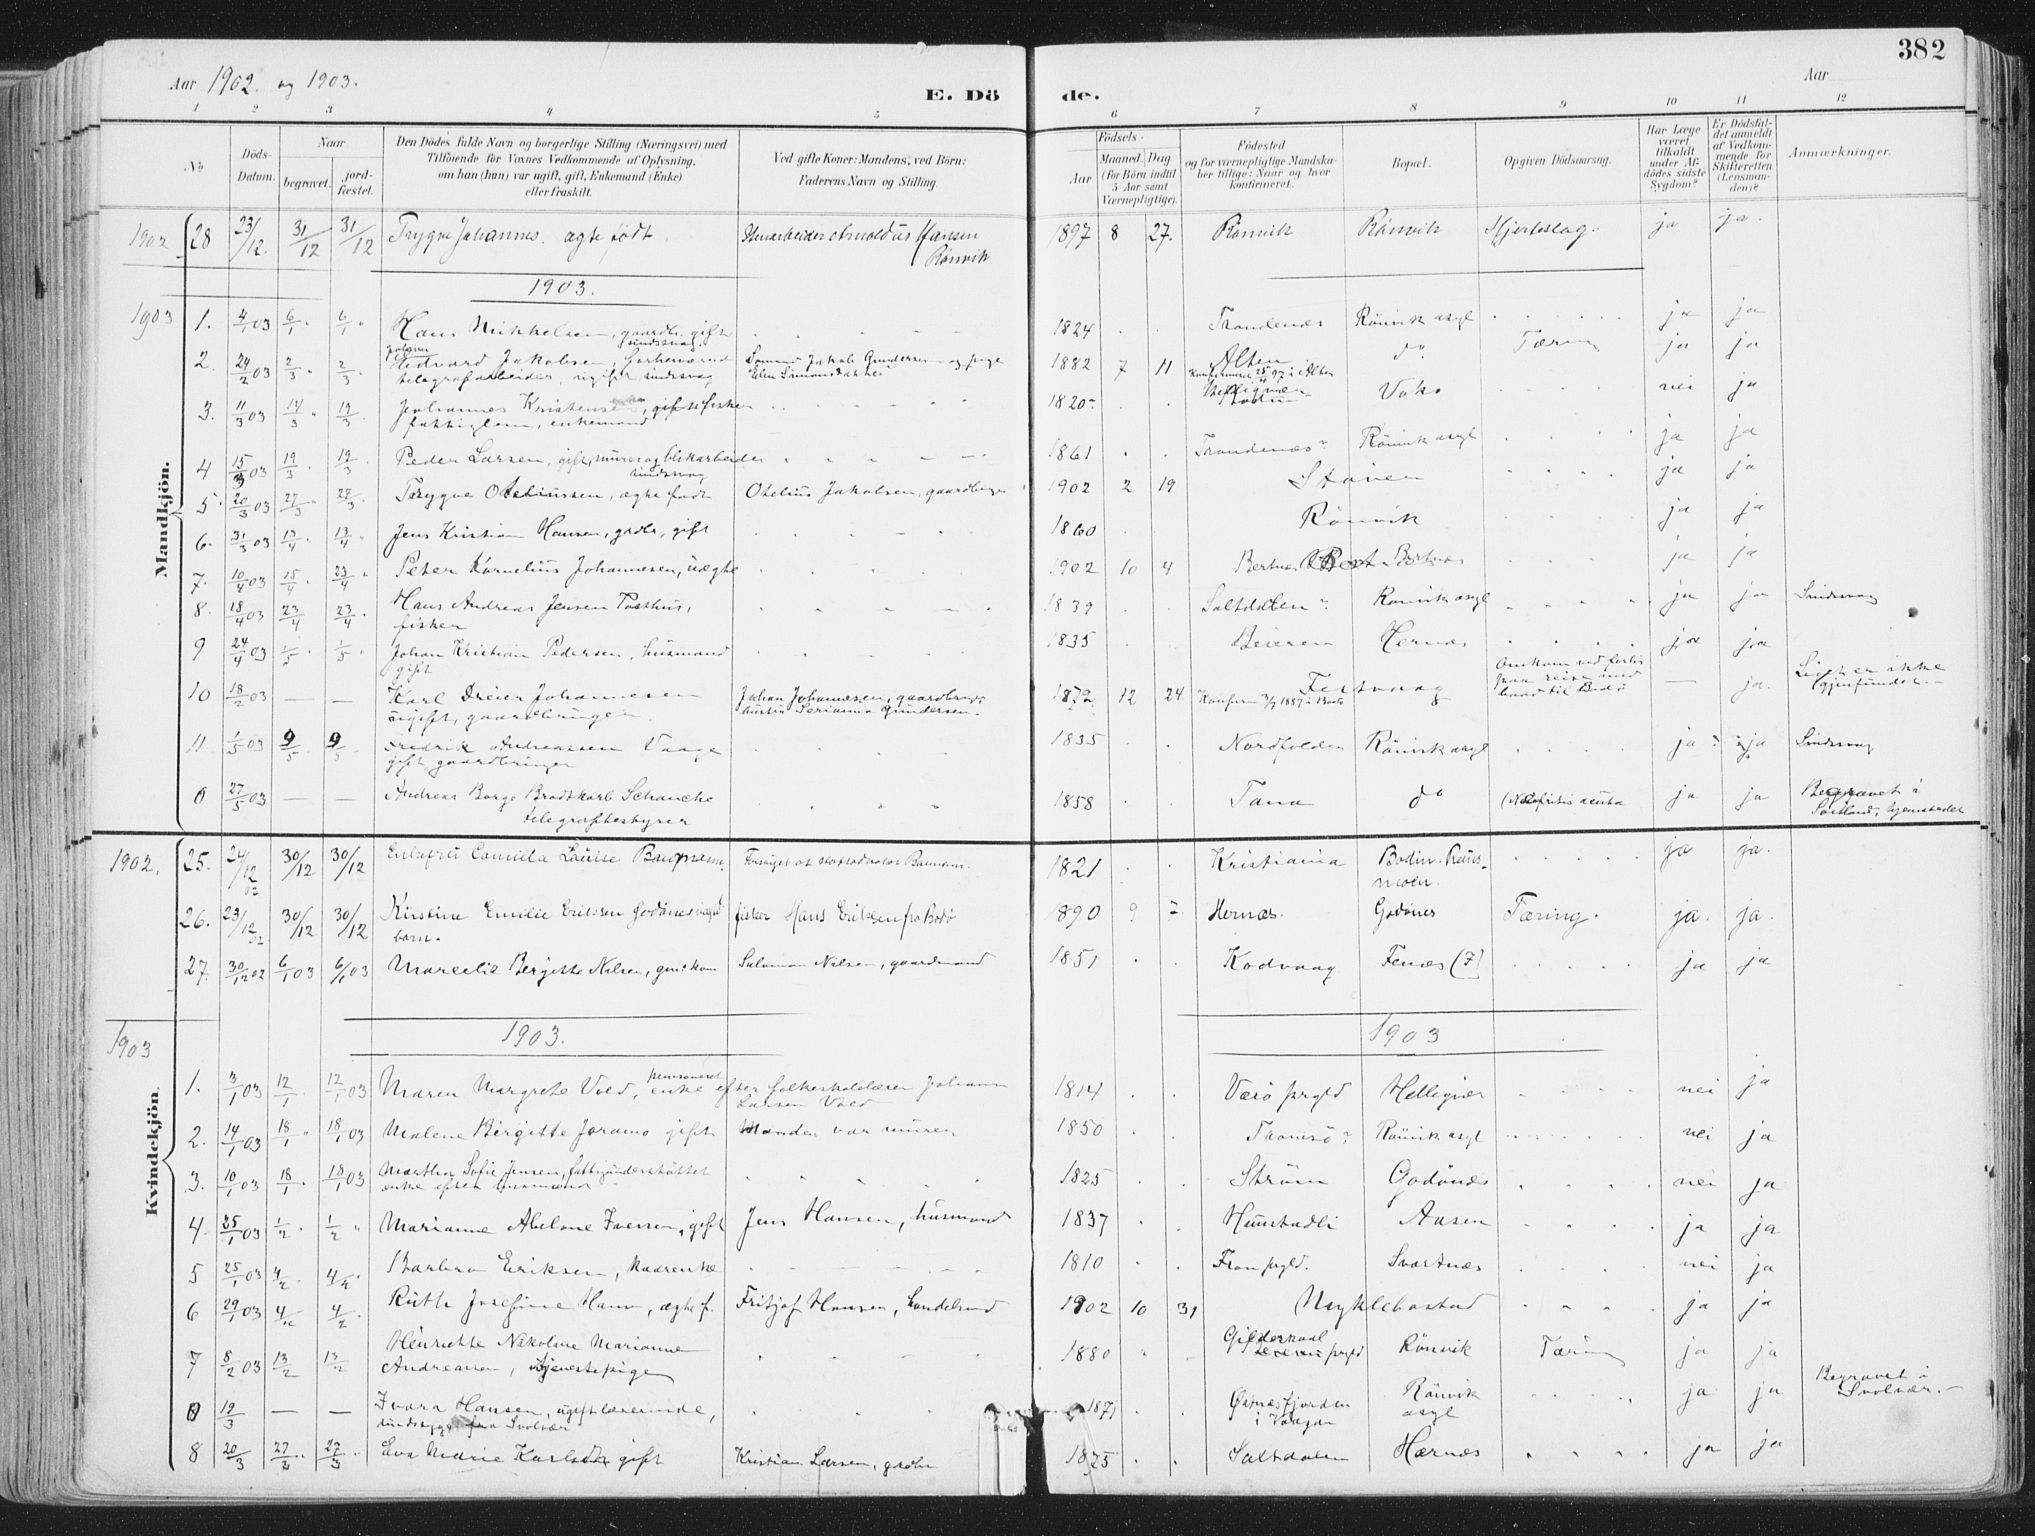 382
Aar 1902. og 1903.
E. Dö de.
Aar
1 2 3 4 5 6 7 8 9 10 11 12
No
Döds-Datum.
Naar
begravet.
jord-fæstet.
Den Dödes fulde Navn og borgerlige Stilling (Næringsvei) med
Tilföiende for Voxnes Vedkommende af Oplysning,
om han (hun) var ugift, gift, Enkemand (Enke)
eller fraskilt.
Ved gifte Koner: Mandens, ved Börn:
Faderens Navn og Stilling.
Födsels-
Aar
Maaned. Dag
(for Börn indtil
5 Aar samt
Værnepligtige).
Födested
og for værnepligtige Mandska-
ber tillige: Naar og hvor
konfirmeret.
Bopæl.
Opgiven Dödsaarsag.
Har Læge
været
tilkaldt
under Af-
dödes sidste
Sygdom?
Er Dödsfal-
det anmeldt
af Vedkom-
mende for
Skifteretten
(Lensman-
den)?
Anmærkninger.
Mandkjön.
1902 28 23/12. 31/12 31/12 Trygve Johannes. ægte født. Stenarbeider Arnoldus Hansen Rönvik 1897 8 27. Rönvik Rönvik Hjerteslag. ja ja.
1903.
1903 1. 4/1 03 6/1 6/1 Hans Mikkelsen, gaardbr. gift sindssvag. 1824 Trondenæs Rönvik asyl ja ja
2. 24/2 03 2/3 2/3 Edvard Jakobsen, forhenværend telegrafarbeider, ugift, sindssvag, Jakob Gundersen og pige 1882 7 11 Alten do Tæring ja ja
3. 11/3 03 14/3 19/3 Johannes Kristensen, fisker fattiglem, enkemand 1820 Voko nei ja
4 15/3 03 19/3 19/3 Peder Larsen, gift, murer og blikarbeider sindssvag 1861 Trondenæs Rönvik asyl ja ja
5 20/3 03 27/3 27/3 Trygve Oteliussen, ægte født Otelius Jakobsen, gaardbruger 1902 2 19 Stöver ja ja
6. 31/3 03 13/4 13/4 Jens Kristian Hansen, grdbr, gift 1860 Rönvik ja ja
7. 10/4 03 15/4 23/4 Peter Kornelius Johannesen, uægte 1902 10 4 Bertnes Bertnes ja ja
8. 18/4 03 23/4 23/4 Hans Andreas Jensen Posthus, fisker 1839 Saltdalen Rönvik asyl ja ja Sindssvag
9 24/4 03 1/5 1/5 Johan Kristian Pedersen, husmand gift 1835 Beieren Hernæs ja ja
10 18/2 03 — — Karl Dreier Johannesen ugift, gaardbruger Johan Johannesen, gaardbruger hustru Serianna Gundersen 1872 12 24 Festvaag Konfirm 3/7 1887 i Bodö Omkom ved forlis paa reise med baad til Bodö — ja Liget er ikke gjenfundet.—
11 1/5 03 9/5 9/5 Fredrik Andreassen Vaage gift gaardbruger 1835 Nordfolden Rönvik asyl ja ja Sindssvag
0 27/5 03 — — Andreas Borge Brodtkorb Schanche telegrafbestyrer 1858 Tana do Nefritis acuta ja ja Begravet i Sortland, hjemstedet
Kvindekjön
1902. 25. 24/12 02 30/12 30/12 Enkefru Camilla Louise Baumann. 1821 Kristiania Bodin. ja ja.
26. 23/12 02 30/12 30/12 Kirstine Emilie Eriksen Godönes ugift barn. fisker Hans Eriksen fra Bodö 1890 9 7. Hernæs. Godönes Tæring. ja. ja.
27. 30/12 02 6/1 03 6/1 03 Marcelie Bergitte Nilsen, gm. kone Salomon Nilsen, gaardmand 1851 Kodvaag Fenæs (?) ja ja
1903
1903.
1903
1. 3/1 03 12/1 12/1 03 Maren Margrete Vold, pensioneret enke efter folkeskolelærer Johan Larsen Vold 1814 Værö prgld Helligvær nei ja
2. 14/1 03 18/1 18/1 03 Malene Birgitte Joramo gift Manden var murer 1850 Tromsö? Rönvik asyl nei ja
3. 10/1 03 18/1 18/1 03 Martha Sofie Jensen, fattigunderstöttet enke efter husmand 1825 Ström Godönæs nei ja
4. 25/1 03 1/2 1/2 Marianne Abelone Iversen, gift Jens Hansen, husmand 1837 Hunstadli Aasen ja ja
5 25/1 03 4/2 4/2 Barbro Eriksen, kaarenke 1810 Fron prgld. Svartnæs nei ja
6 29/1 03 4/2 4/2 Ruth Josefine Hans, ægte f. Fritjof Hansen, handelsmd 1902 10 31 Myklebostad ja ja
7 8/2 03 13/2 13/2 Henriette Nikoline Marianne Andreassen, tjenestepige 1880 Gildeskaal prgld Rönvik Tæring ja ja
0 19/3 — — Ivara Hansen, ugift lærerinde, sindssyg fra Svolvær 1871 Östnesfjorden i Vaagan Rönvik asyl ja ja Begravet i Svolvær.—
8 20/3 27/3 27/3 Eva Marie Karlsdtr gift Kristian Larsen, grdbr 1875 Saltdalen Hærnes ja ja